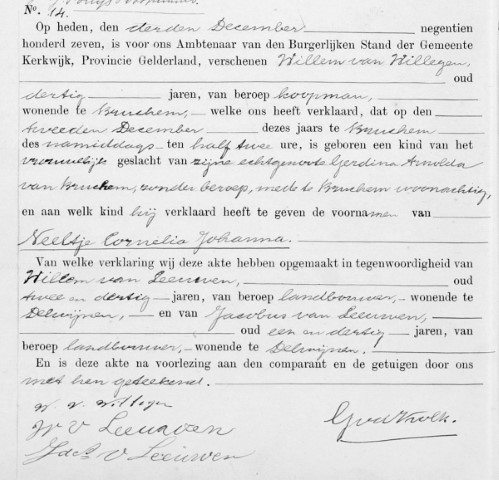 No. 14.
Op heden, den derden December negentien
honderd zeven, is voor ons Ambtenaar van den Burgerlijken Stand der Gemeente
Kerkwijk, Provincie Gelderland, verschenen Willem van Willegen,
oud
dertig jaren, van beroep koopman,
wonende te Bruchem, — welke ons heeft verklaard, dat op den
tweeden December dezes jaars te Bruchem
des namiddags ten half twee ure, is geboren een kind van het
vrouwelijk geslacht van zijne echtgenoote Gerdina Arnolda
van Bruchem, zonder beroep, mede te Bruchem woonachtig,
en aan welk kind hij verklaard heeft te geven de voornamen van
Neeltje Cornelia Johanna.
Van welke verklaring wij deze akte hebben opgemaakt in tegenwoordigheid van
Willem van Leeuwen, oud
twee en dertig jaren, van beroep landbouwer, — wonende te
Delwijnen, — en van Jacobus van Leeuwen,
oud een en dertig jaren, van
beroep landbouwer, — wonende te Delwijnen.
En is deze akte na voorlezing aan den comparant en de getuigen door ons
met hen geteekend.
W. v. Willegen
W v Leeuwen
Jac v Leeuwen